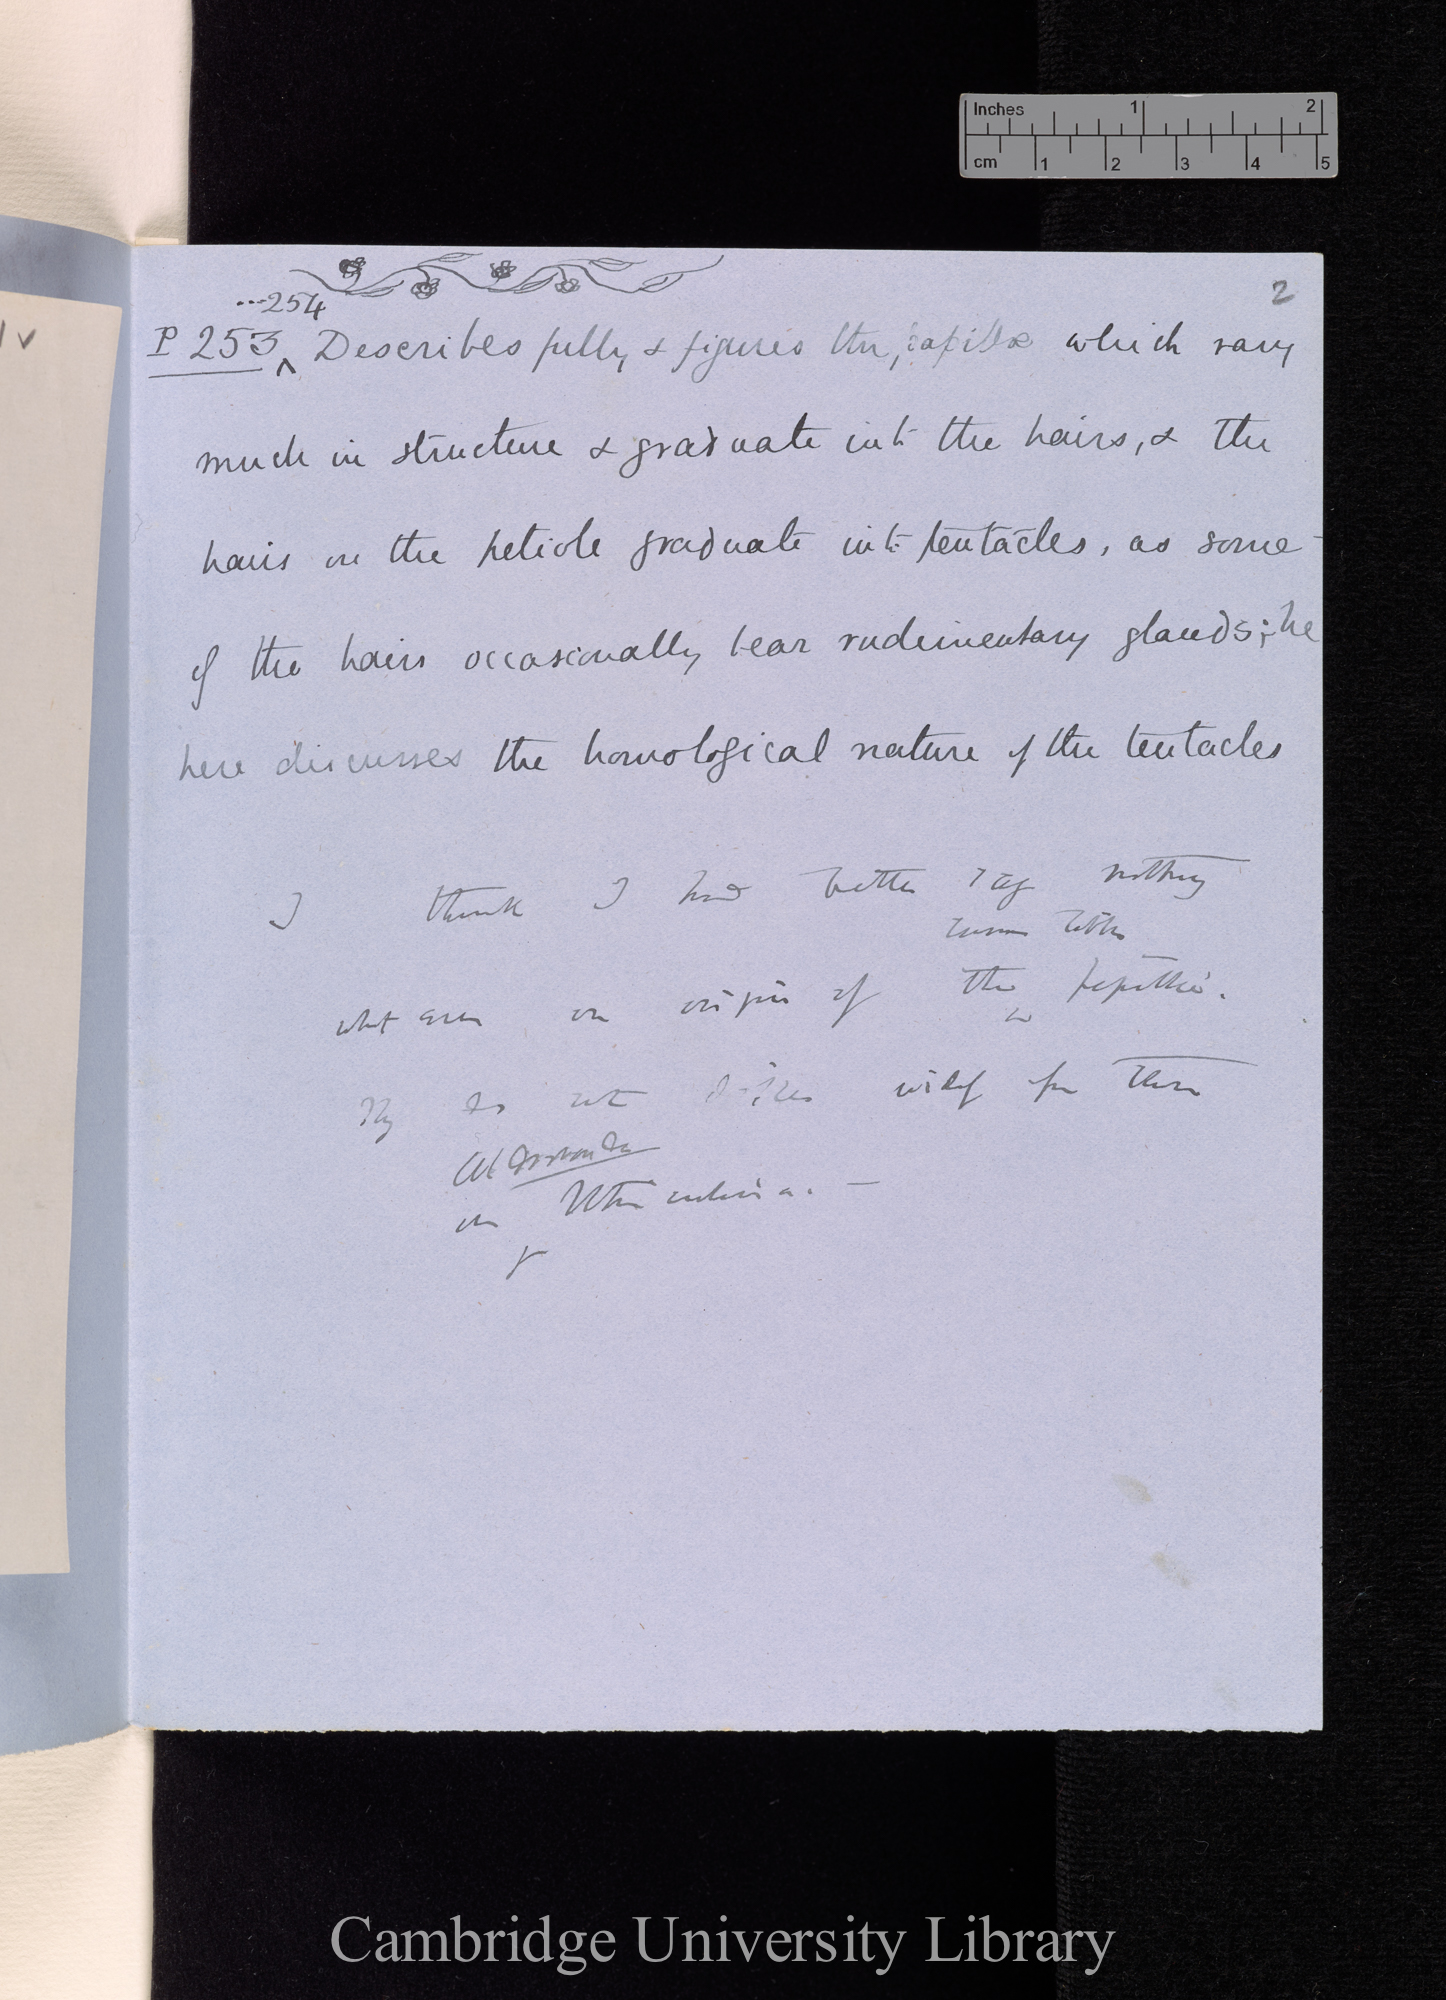 Inches 1 2
cm 1 2 3 4 5
2
...254
P 253 ^ Describes fully & figures the papillæ which vary
much in structure & graduate into the hairs, & the
hairs on the petiole graduate into tentacles, as some
of the hairs occasionally bear rudimentary glands; he
here discusses the homological nature of the tentacles
I think I had better say nothing
whatever on origin of the papillæ.
They do not differ widely from those
Aldrovanda
on Utricularia. —
Cambridge University Library